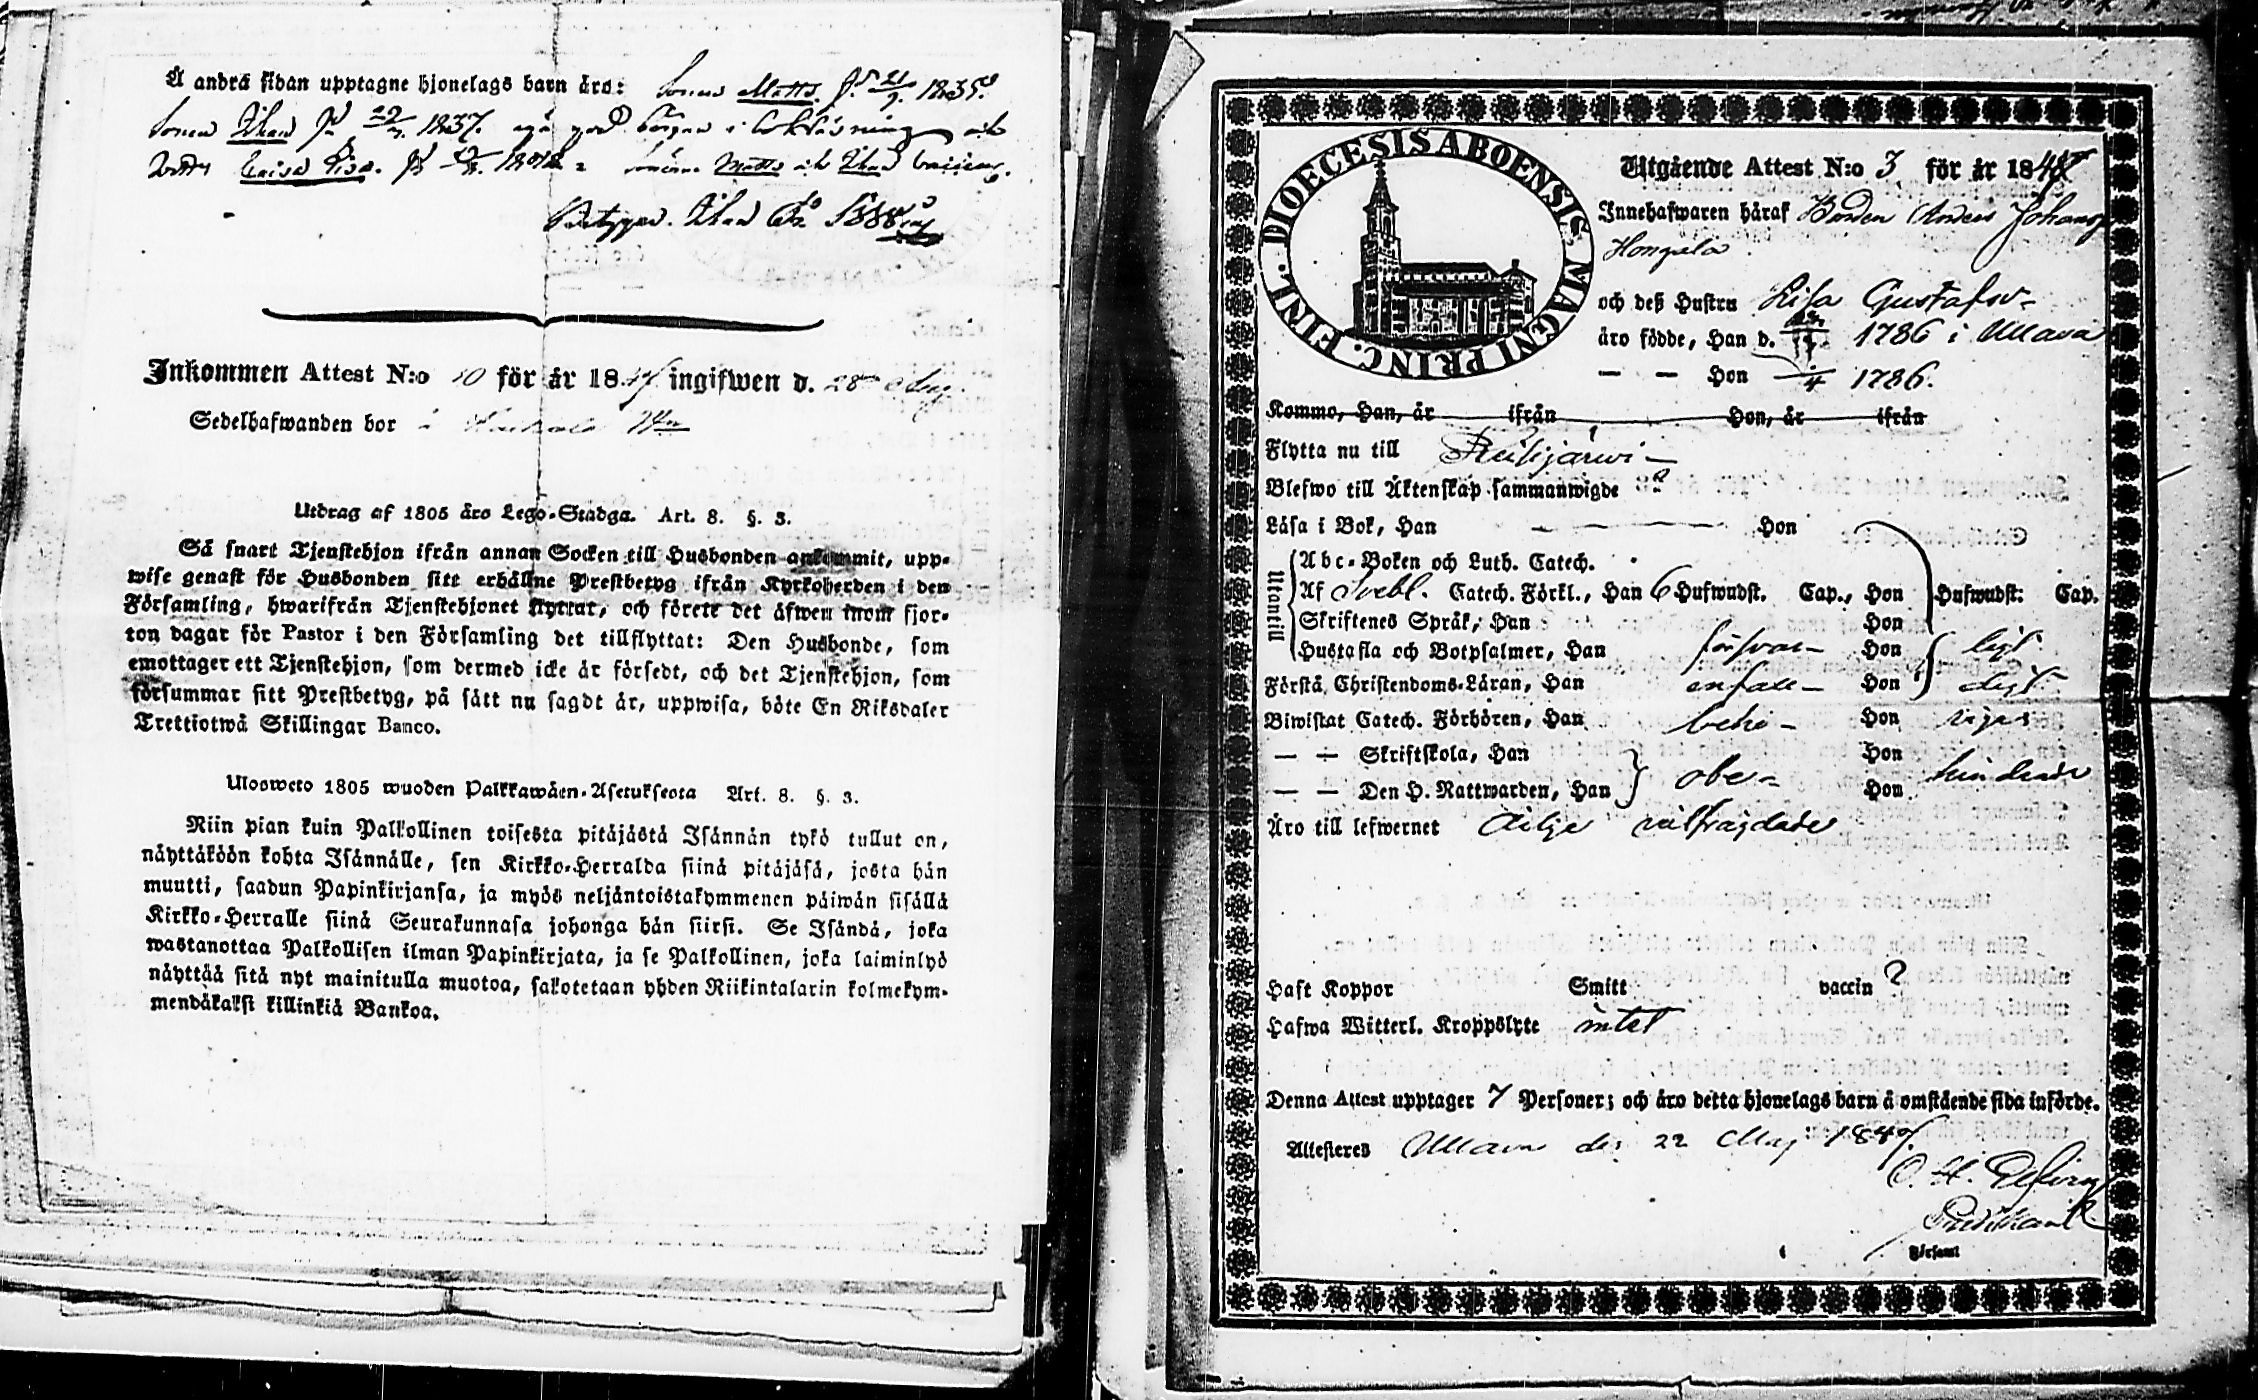 Å andra sidan upptagne hjonelags barn äro: Sonen Matts. 1835.
Sonen Johan 1837.
Caisa Lisa. Matts Johan
Betygar. Johan
Inkommen Attest N:o 10 för år 184 ingifwen d. 28 Aug.
Sedelhafwanden bor å
Utdrag af 1805 års Lego-Stadga. Art. 8. §. 3.
Så snart Tjenstehjon ifrån annan Socken till Husbonden ankommit, upp-
wise genast för Husbonden sitt erhållne Prestbetyg ifrån Kyrkoherden i den
Församling, hwarifrån Tjenstehjonet flyttat, och förete det äfwen inom fjor-
ton dagar för Pastor i den Församling det tillflyttat: Den Husbonde, som
emottager ett Tjenstehjon, som dermed icke är försedt, och det Tjenstehjon, som
försummar sitt Prestbetyg, på sätt nu sagdt är, uppwisa, böte En Riksdaler
Trettiotwå Skillingar Banco.
Ulosweto 1805 wuoden Palkkawäen-Asetuksesta Art. 8. §. 3.
Niin pian kuin Palkollinen toisesta pitäjästä Isännän tykö tullut on,
näyttäköön kohta Isännälle, sen Kirkko-Herralda siinä pitäjäsä, josta hän
muutti, saadun Papinkirjansa, ja myös neljäntoistakymmenen päiwän sisällä
Kirkko-Herralle siinä Seurakunnasa johonga hän siirsi. Se Isändä, joka
wastanottaa Palkollisen ilman Papinkirjata, ja se Palkollinen, joka laiminlyö
näyttää sitä nyt mainitulla muotoa, sakotetaan yhden Riikintalarin kolmekym-
mendäkaksi killinkiä Bankoa.
DIOECESIS ABOENSIS MAGNI PRINC. FINL.
Utgående Attest N:o 3 för år 184
Innehafwaren häraf Bonden Anders Johansson
Hongala
och deß Hustru Lisa Gustafsd.
äro födde, Han d. 1786 i Ullava
— — Hon 4 1786.
Kommo, Han, år ifrån Hon, år ifrån
Flytta nu till Reisjärwi
Blefwo till Äktenskap sammanwigde
Läsa i Bok, Han Hon
Utantill
Abc-Boken och Luth. Catech.
Af Svebl. Catech. Förkl., Han 6 Hufwudst. Cap., Hon Hufwudst: Cap.
Skriftenes Språk, Han Hon
Hustafla och Botpsalmer, Han försvar- Hon ligt
Förstå Christendoms-Läran, Han enfal- Hon digt
Biwistat Catech. Förhören, Han behö- Hon rigen
— — Skriftskola, Han Hon
— — Den H. Nattwarden, Han obe- Hon hindrade
Äro till lefwernet ärlige välfrägdade
Haft Koppor Smitt vaccin ?
Hafwa Witterl. Kroppslyte intet
Denna Attest upptager 7 Personer; och äro detta hjonelags barn å omstående sida införde.
Attesteres Ullava den 22 Maj 184
Församl